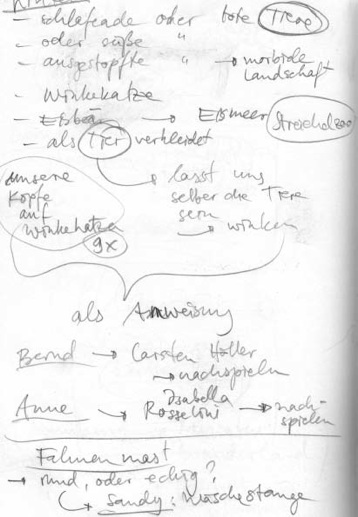 - schlafende oder tote Tiere
- oder süße "
- ausgestopfte " → morbide Landschaft
- Winkekatze
- Eisbär → Eismeer Streichelzoo
- als Tier verkleidet
unsere Köpfe auf Winkekatzen 9x
→ lasst uns selber die Tiere sein
→ winken
als Anweisung
Bernd → Carsten Höller
→ nachspielen
Anne → Isabella Rosselini → nach-
spielen
Fahnenmast
→ rund, oder eckig?
→ Sandy: Wäschestange